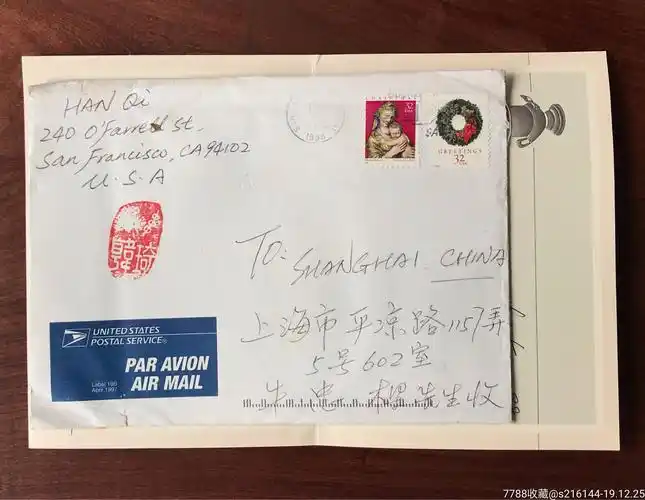 HAN Qi
240 O'Farrell St.
San Francisco, CA 94102
U.S.A
1998
CHRISTMAS
32
USA
GREETINGS
32
USA
韓琦
TO: SHANGHAI CHINA
上海市平凉路1157弄
5号602室
朱忠 先生收
UNITED STATES
POSTAL SERVICE®
PAR AVION
AIR MAIL
Label 19B
April 1997
7788收藏@s216144-19.12.25